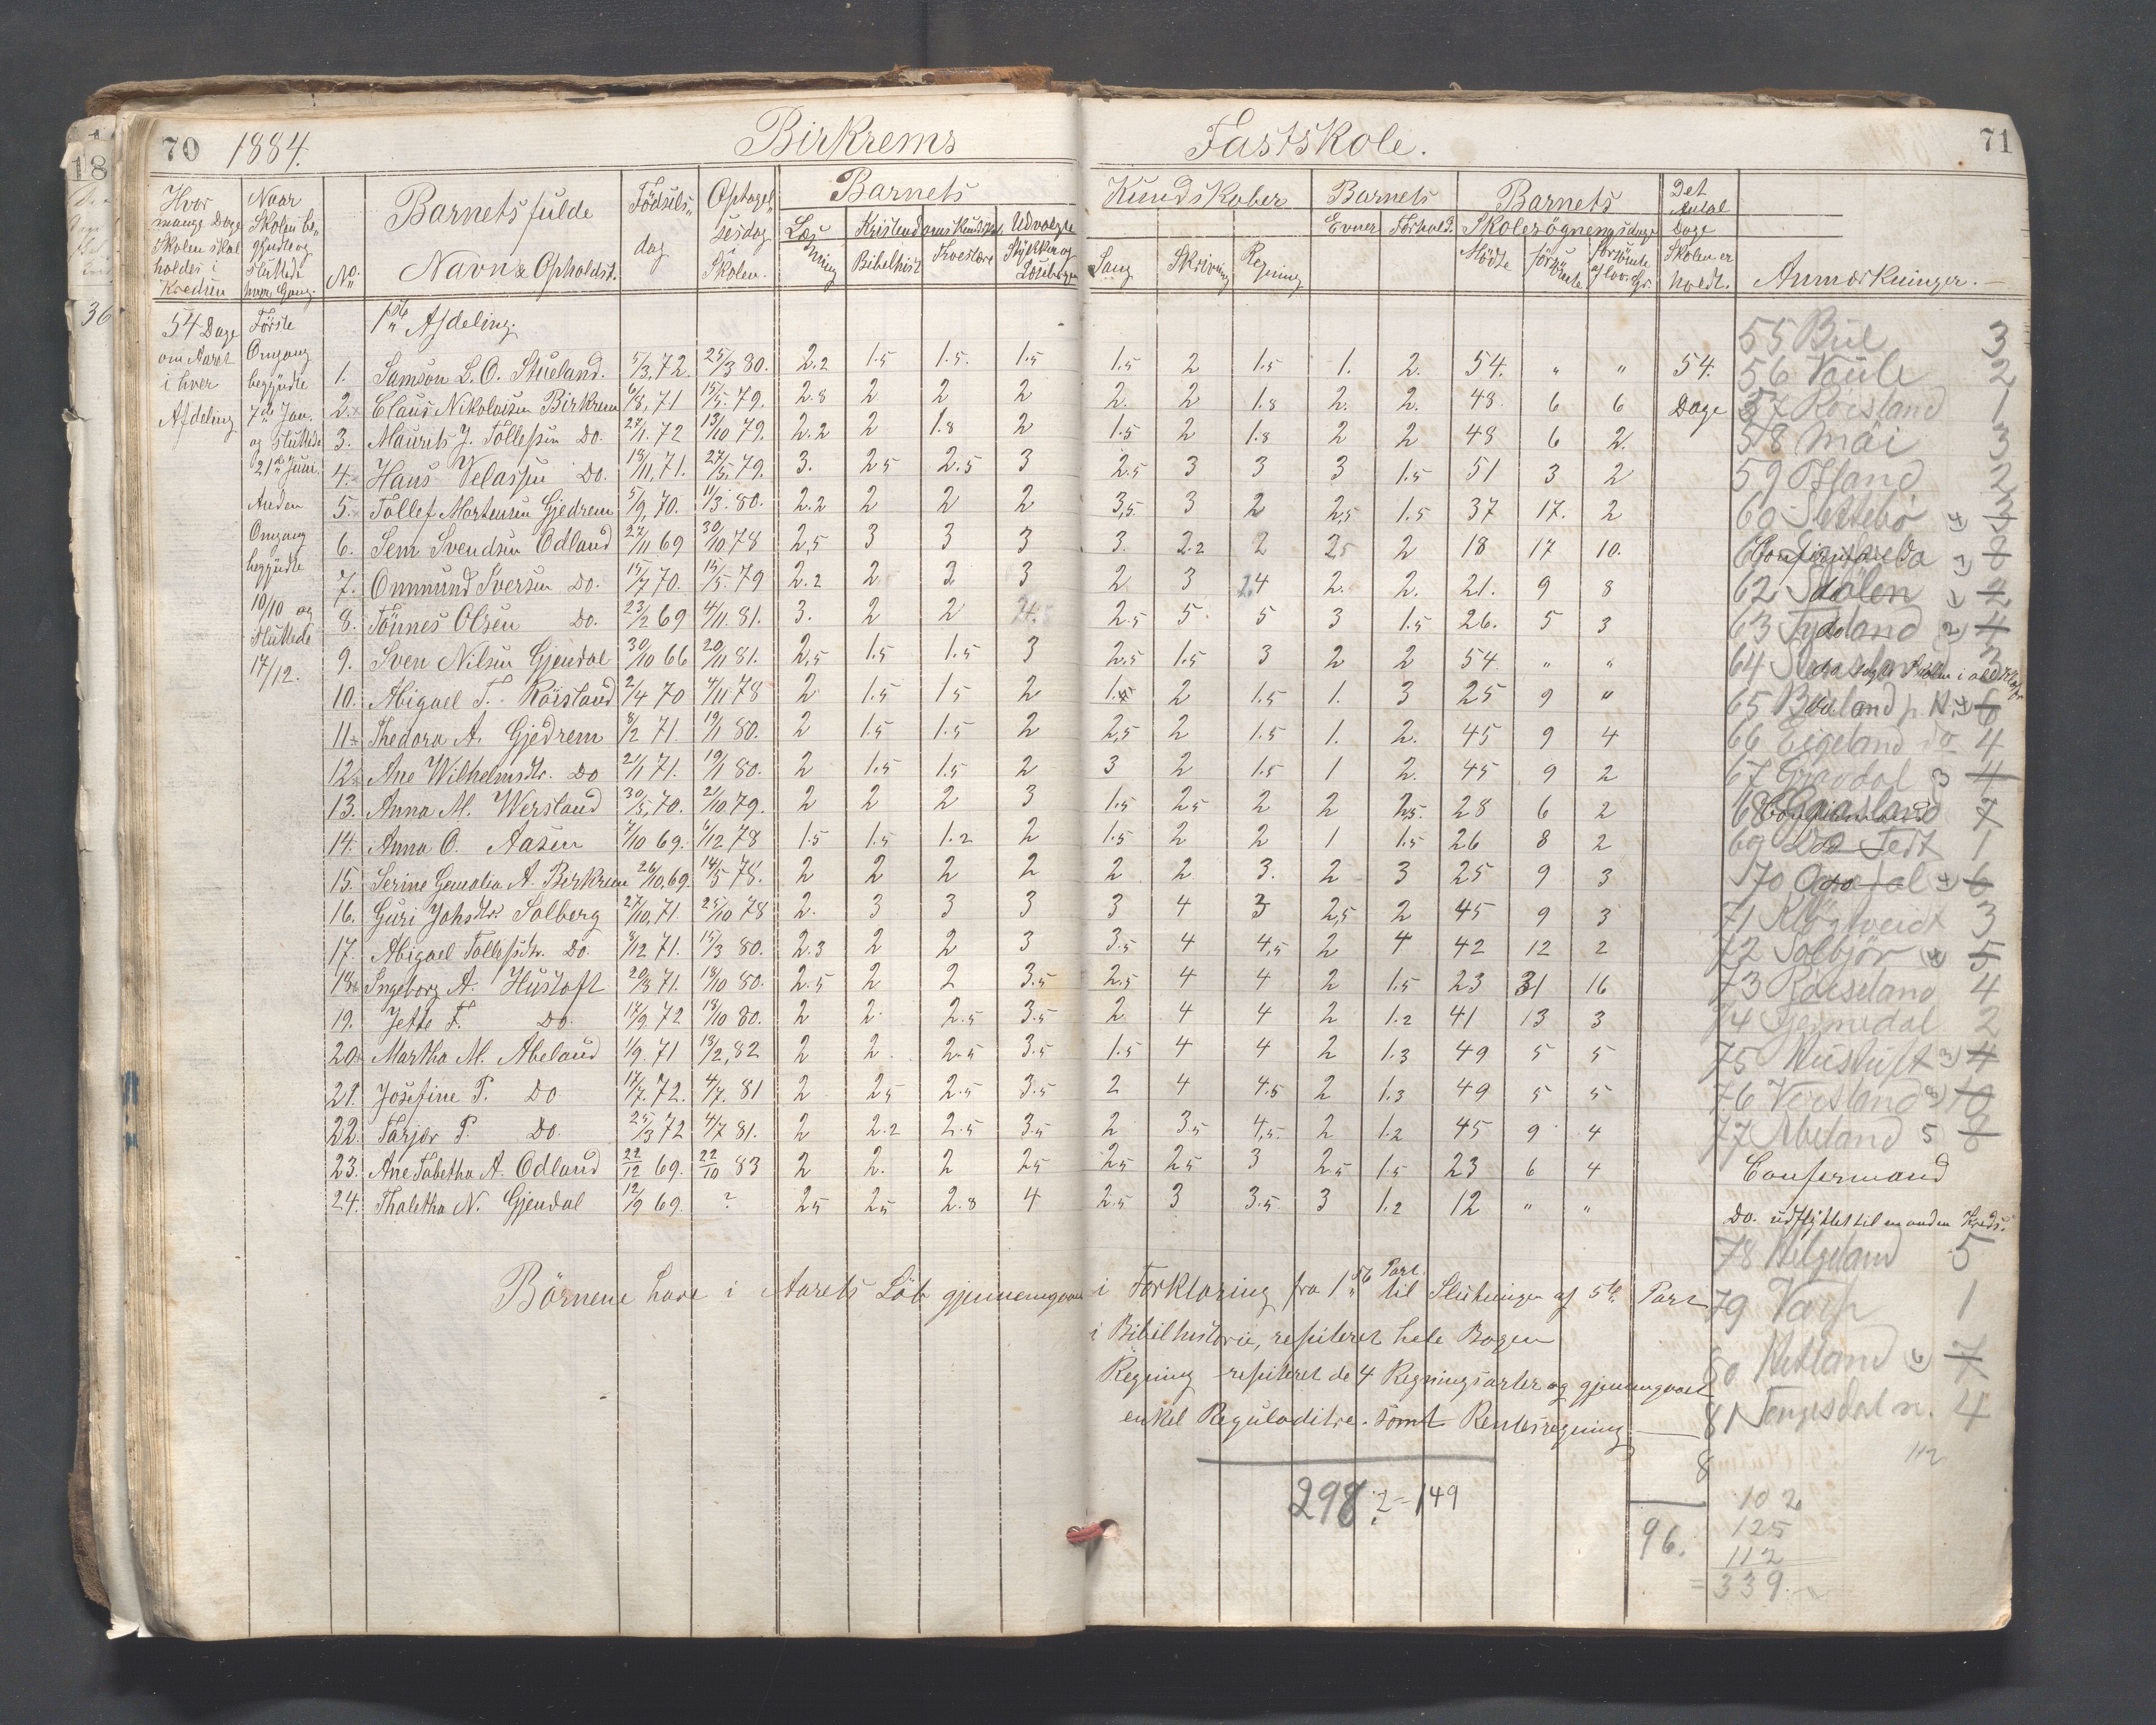 70 1884. Birkrems Fastskole. 71
Hvor mange Dage Skolen skal holdes i Kredsen
Naar Skolen begyndte og sluttede hver Gang.
No.
Barnets fulde Navn & Opholdst.
Födsels dag
Optagelsesdag i Skolen.
Barnets Kundskaber
Læsning
Kristendomskundskab
Bibelhist
Troeslære
Udvalgte Stykker og Læsebogen
Sang
Skrivning
Regning
Barnets
Evner
Forhold.
Barnets Skolesögnemgsdage
Mödte
forsömte
forsömte af lov. Gr.
Det Antal Dage Skolen er holdt.
Anmærkninger.
54 Dage om Aaret i hver Afdeling
Förste Omgang begyndte 7de Jan. og sluttede 21de Juni.
Anden Omgang begyndte 10/10 og sluttede 17/12.
1ste Afdeling.
1. Samson L. O. Stueland. 5/3, 72. 25/3 80. 2.2 1.5 1.5. 1.5 1.5 2 1.5 1. 2. 54. " " 54.
2. Claus Nikolaisen Birkrem 6/8, 71 15/5. 79. 2.8 2 2 2 2. 2 1.8 2. 2. 48. 6 6 Dage
3. Maurits J. Tollefsen Do. 27/1. 72 13/10 79. 2.2 2 1.8 2 1.5 2 1.8 2 2 48 6 2.
4. Hans Velassen Do. 18/11, 71. 27/5, 79. 3. 25 2.5 3 2.5 3 3 3 1.5 51 3 2
5. Tollef Mortensen Gjedrem 5/9, 70. 11/3. 80. 2.2 2 2 2 3,5. 3 2 2,5 1.5 37 17. 2
6. Sem Svendsen Odland 27/11 69 30/10 78 2,5 3 3 3 3. 2.2 2 25 2 18 17 10.
7. Ommund Iversen Do. 15/7 70. 15/5. 79 2.2 2 2 3 2 3 2,4 2. 2. 21. 9 8
8. Tönnes Olsen Do. 23/2 69 4/11 81. 3. 2 2 2.5 5 5 3 1.5 26. 5 3
9. Sven Nilsen Gjendal 30/10 66 20/11 81. 2,5 1.5 1.5 3 2.5 1.5 3 2 2 54 " "
10. Abigael T. Röisland 2/4 70 4/11 78 2 1.5 15 2 2 1.5 1. 3 25 9 "
11. Thedora A. Gjedrem 8/2 71. 19/1 80. 2 1.5 1.5 2 2,5 2 1.5 1. 2. 45 9 4
12. Ane Wilhelmsdtr. Do 21/1 71. 19/1 80. 2 1.5 1.5 2 3 2 1.5 1 2. 45 9 2
13. Anna M. Wersland 30/5, 70. 2/10. 79. 2 2 2 3 1.5 25 2 2 2,5. 28 6 2
14. Anna O. Aasen 7/10 69. 6/12 78 1.5 1.5 1.2 2 1.5 2 2 1 1.5 26 8 2
15. Serine Gemalia A. Birkrem 26/10, 69. 14/5 78. 2 2 2 2 2 2 3. 2 3 25 9 3
16. Guri Johsdtr. Solberg 27/10, 71. 25/10 78 2. 3 3 3 3 4 3 2,5 2 45 9 3
17. Abigael Tollefsdtr. Do. 8/12 71. 15/3 80. 2.3 2 2 3 3.5 4 4,5 2 4 42 12 2
18. Ingeborg A. Hustoft 20/3 71. 18/10 80. 2.5 2 2 3.5 2.5 4 4 2 1.5 23 31 16
19. Jette F. Do. 17/9 72 18/10 80. 2 2. 2.5 3.5 2 4 4 2 1.2 41 13 3
20. Martha M. Abeland 1/9. 71 18/2, 82 2 2. 2.5 3.5 1.5 4 4 2 1.3 49 5 5
21. Josefine P. Do 17/7. 72. 4/7. 81 2 25 2.5 3.5 2 4 4.5 2 1.3 49 5 5
22. Tarjer P. Do. 25/3 72 4/7 81. 2 2.2 2.5 3.5 2 3.5 4,5. 2 1.2 45 9 4
23. Ane Tabetha A. Odland 22/12 69. 22/10 83 2 2. 2 25 25 25 3 2.5 1.5 23 6 4 Confermand
24. Thaletha N. Gjendal 12/9 69 ? 25 25 2.8 4 2.5 3 3.5 3 1.2 12 " " Do. udflyttet til en anden Kreds.
55 Bue 3
56 Vaule 2
57 Röisland 1
58 Möi 3
59 Tsland 2
60 Slettebö
62 Stölen
66 Eigeland 4
67 Gravdal 3
70 6
71 3
72 Solbjör 5
73 Röiseland 4
74 2
75 Hustuft 4
76 Versland 10
77 Abeland 5 8
78 Helgeland 5
79 Varp 1
80 Netland 7
81 Tengesdal n. 4
8
112
Börnene have i Aarets Löb gjennemgaaet i Forklaring fra 1ste Part til Slutningen af 5te Part
i Bibelhistorie, repiteret hele Bogen
Regning repiteret de 4 Regningsarter og gjennemgaaet
enkel Reguladitri. samt Rentesregning
298 : 2 = 149
96.
102
125
112
= 339